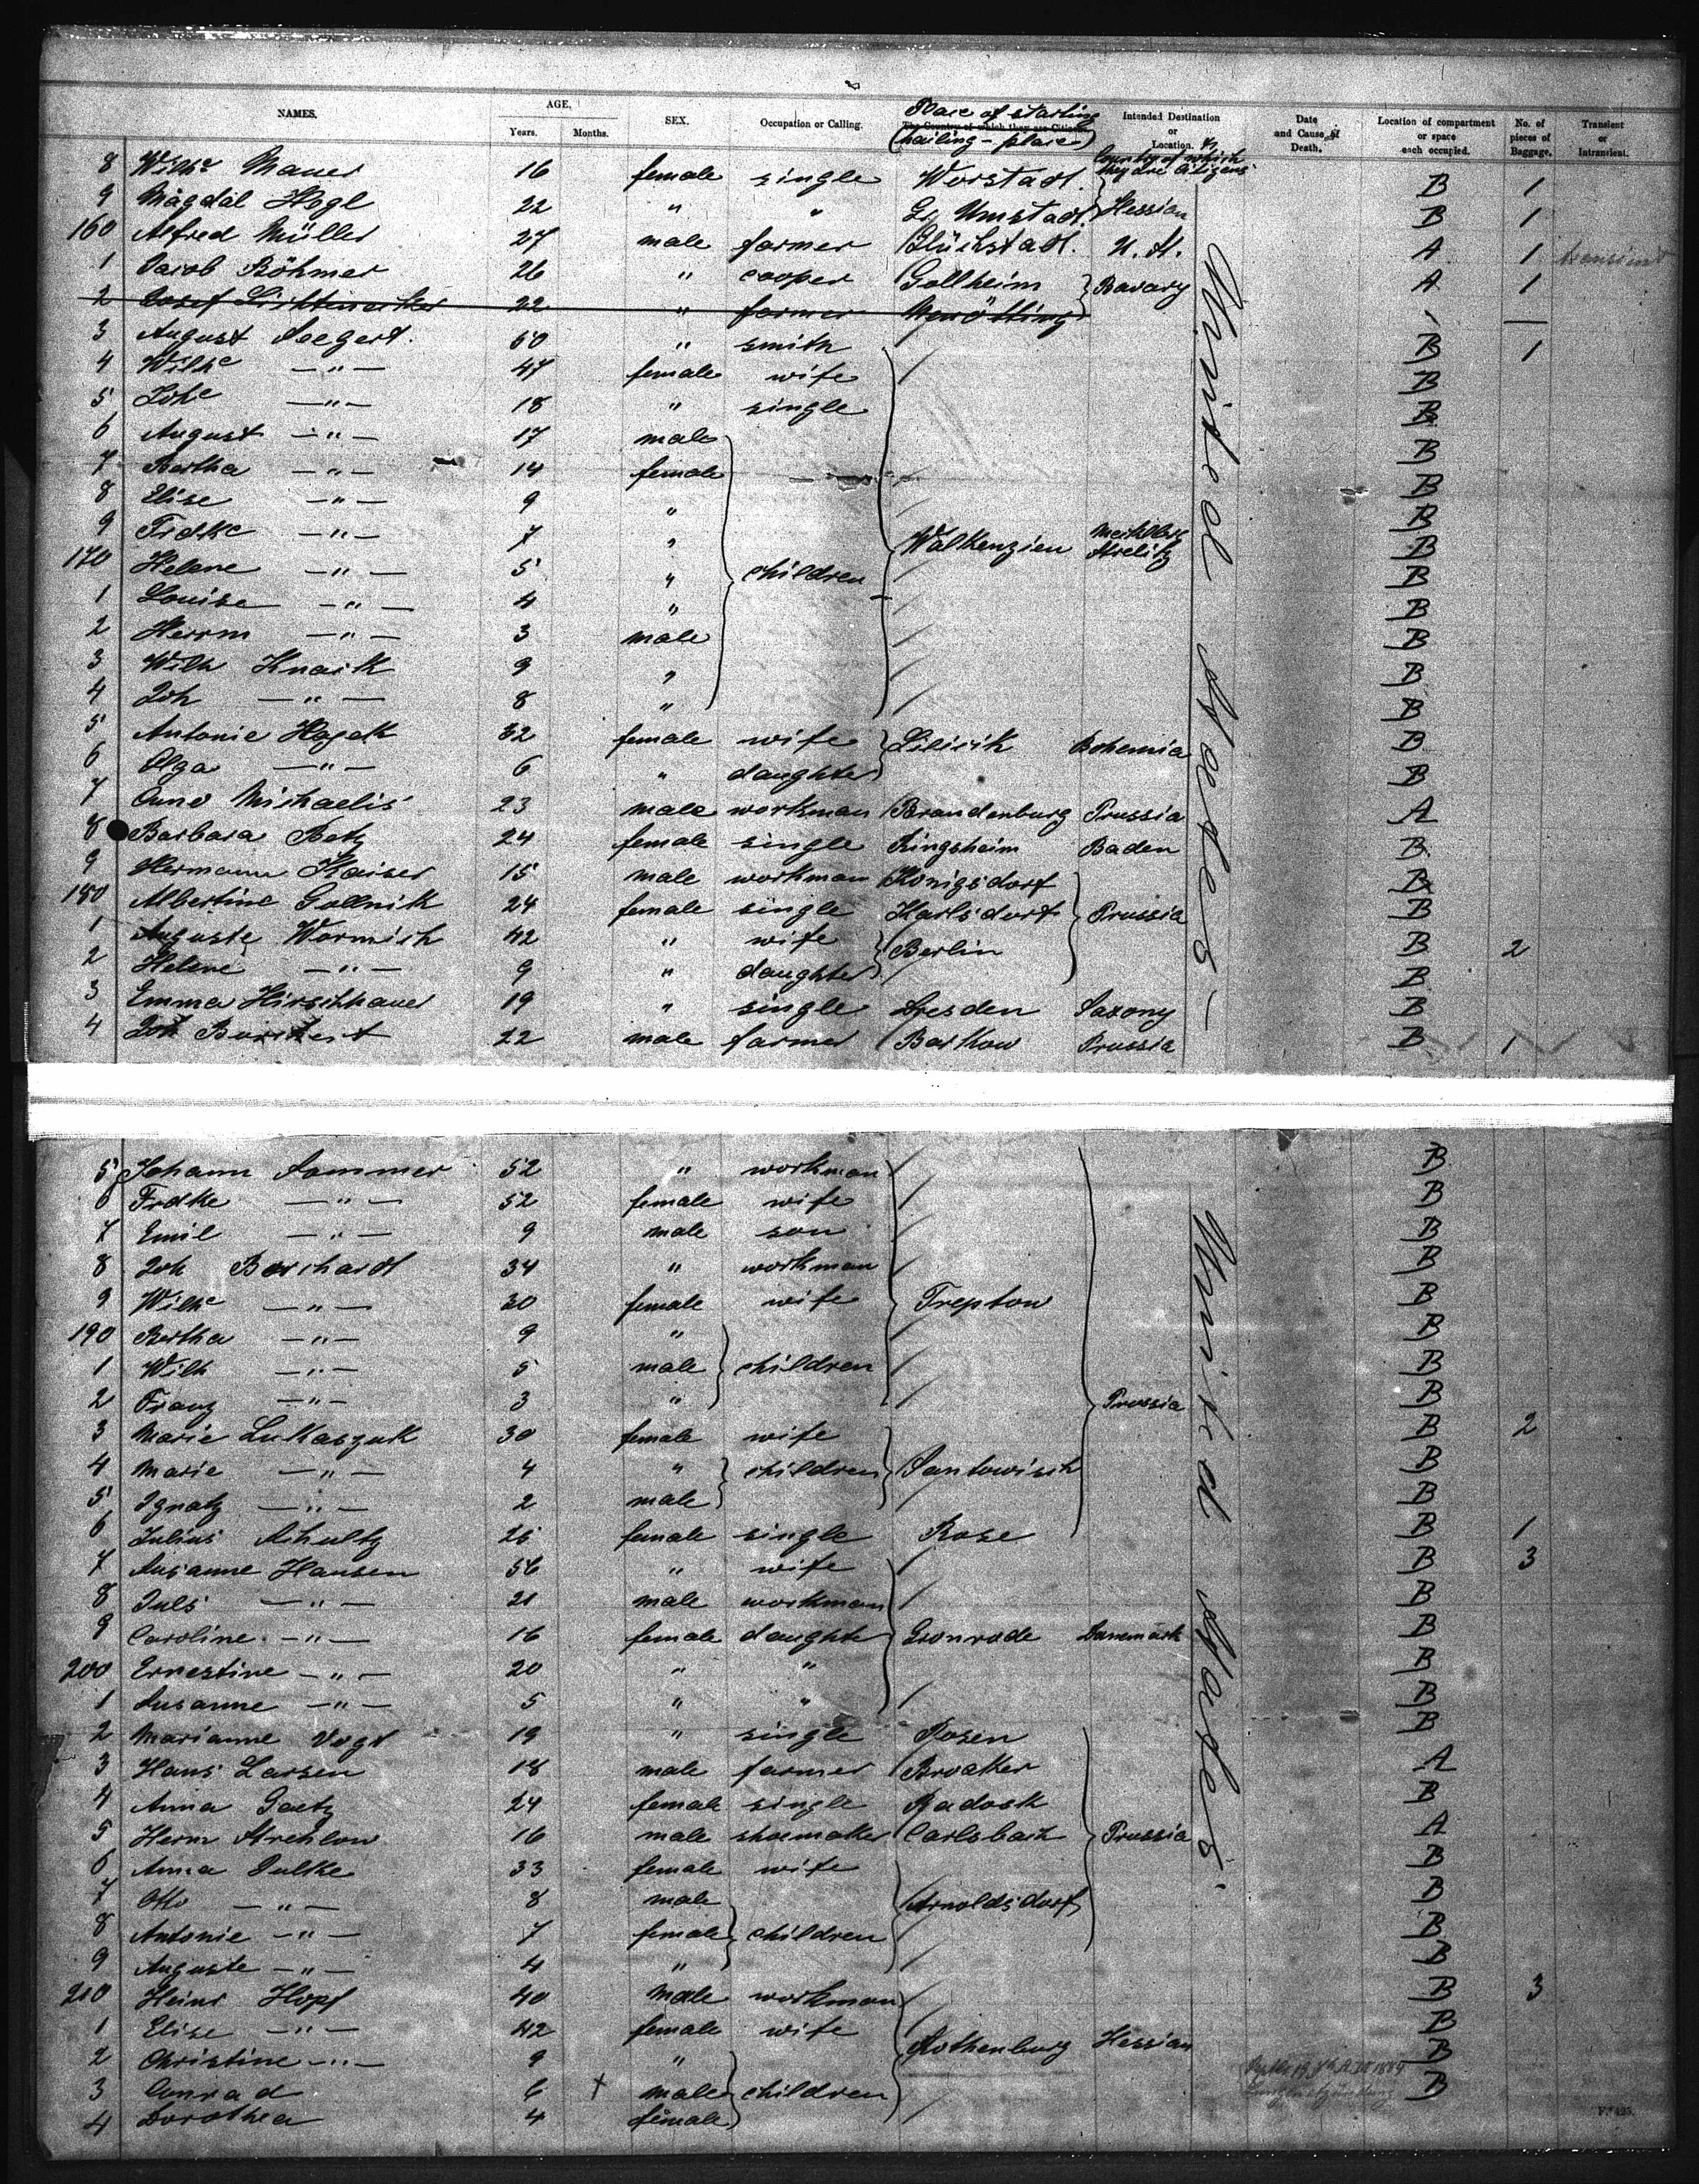 NAMES. AGE, Years. Months. SEX. Occupation or Calling. The Country of which they are Citizens Place of starting (hailing-place) Intended Destination or Location. Country of which they are Citizens Date and Cause of Death. Location of compartment or space each occupied. No. of pieces of Baggage. Transient or Intransient.
8 Wilhe Mauer 16 female single Worstadt B 1
9 Magdal Hogl 22 " " Gr. Umstadt Hessian B 1
160 Alfred Müller 27 male farmer Glückstadt U. St. A 1 transient
1 Jacob Böhmer 26 " cooper Gollheim Bavary A 1
2 Josef 22 " farmer
3 August Seegert 50 " smith B 1
4 Wilhe — " — 47 female wife B
5 Johe — " — 18 " single B
6 August — " — 17 male B
7 Bertha — " — 14 female B
8 Elise — " — 9 " B
9 Fridke — " — 7 " Walkenzien Mecklbg Strelitz B
170 Helene — " — 5 " children B
1 Louise — " — 4 " B
2 Herrm — " — 3 male B
3 Wilh Knaik 9 " B
4 Joh — " — 8 " B
5 Antonie Hagek 32 female wife Lilicik Bohemia B
6 Olga — " — 6 " daughter B
7 Michaelis 23 male workman Brandenburg Prussia A
8 Barbara Betz 24 female single Ringsheim Baden B
9 Hermann Kaiser 15 male workman Königsdorf B
180 Albertine Gollnik 24 female single Karlsdorf Prussia B
1 Auguste Wormich 42 " wife Berlin B 2
2 Helene — " — 9 " daughter B
3 Emma Hirschhauer 19 " single Dresden Saxony B
4 Joh Borchert 22 male farmer Barkow Prussia B 1
United States
5 Johann Sommer 52 " workman B
6 Frdke — " — 52 female wife B
7 Emil — " — 9 male son B
8 Joh Borchardt 34 " workman B
9 Wilhe — " — 30 female wife Treptow B
190 Bertha — " — 9 " B
1 Wilh — " — 5 male children B
2 Franz — " — 3 " Prussia B
3 Marie Lukaszuk 30 female wife B 2
4 Marie — " — 4 " children Santowisch B
5 Ignatz — " — 2 male B
6 Julius Schultz 25 female single Rose B 1
7 Susanne Hansen 56 " wife B 3
8 Juls — " — 21 male workman B
9 Caroline — " — 16 female daughter Gronrode Danemark B
200 Ernestine — " — 20 " " B
1 Susanne — " — 5 " " B
2 Marianne Vogt 19 " single Posen B
3 Hans Larsen 18 male farmer Broaker A
4 Anna Goetz 24 female single Radosk B
5 Herm Strehlow 16 male shoemaker Carlsbach Prussia A
6 Anna Dulke 33 female wife B
7 Otto — " — 8 male Arnoldsdorf B
8 Antonie — " — 7 female children B
9 Auguste — " — 4 " B
210 Heinr Hopf 40 male workman B 3
1 Elise — " — 42 female wife Rothenburg Hessian B
2 Christine — " — 9 " B
3 Conrad 6 + male children B
4 Dorothea 4 female
United States
F. 425.